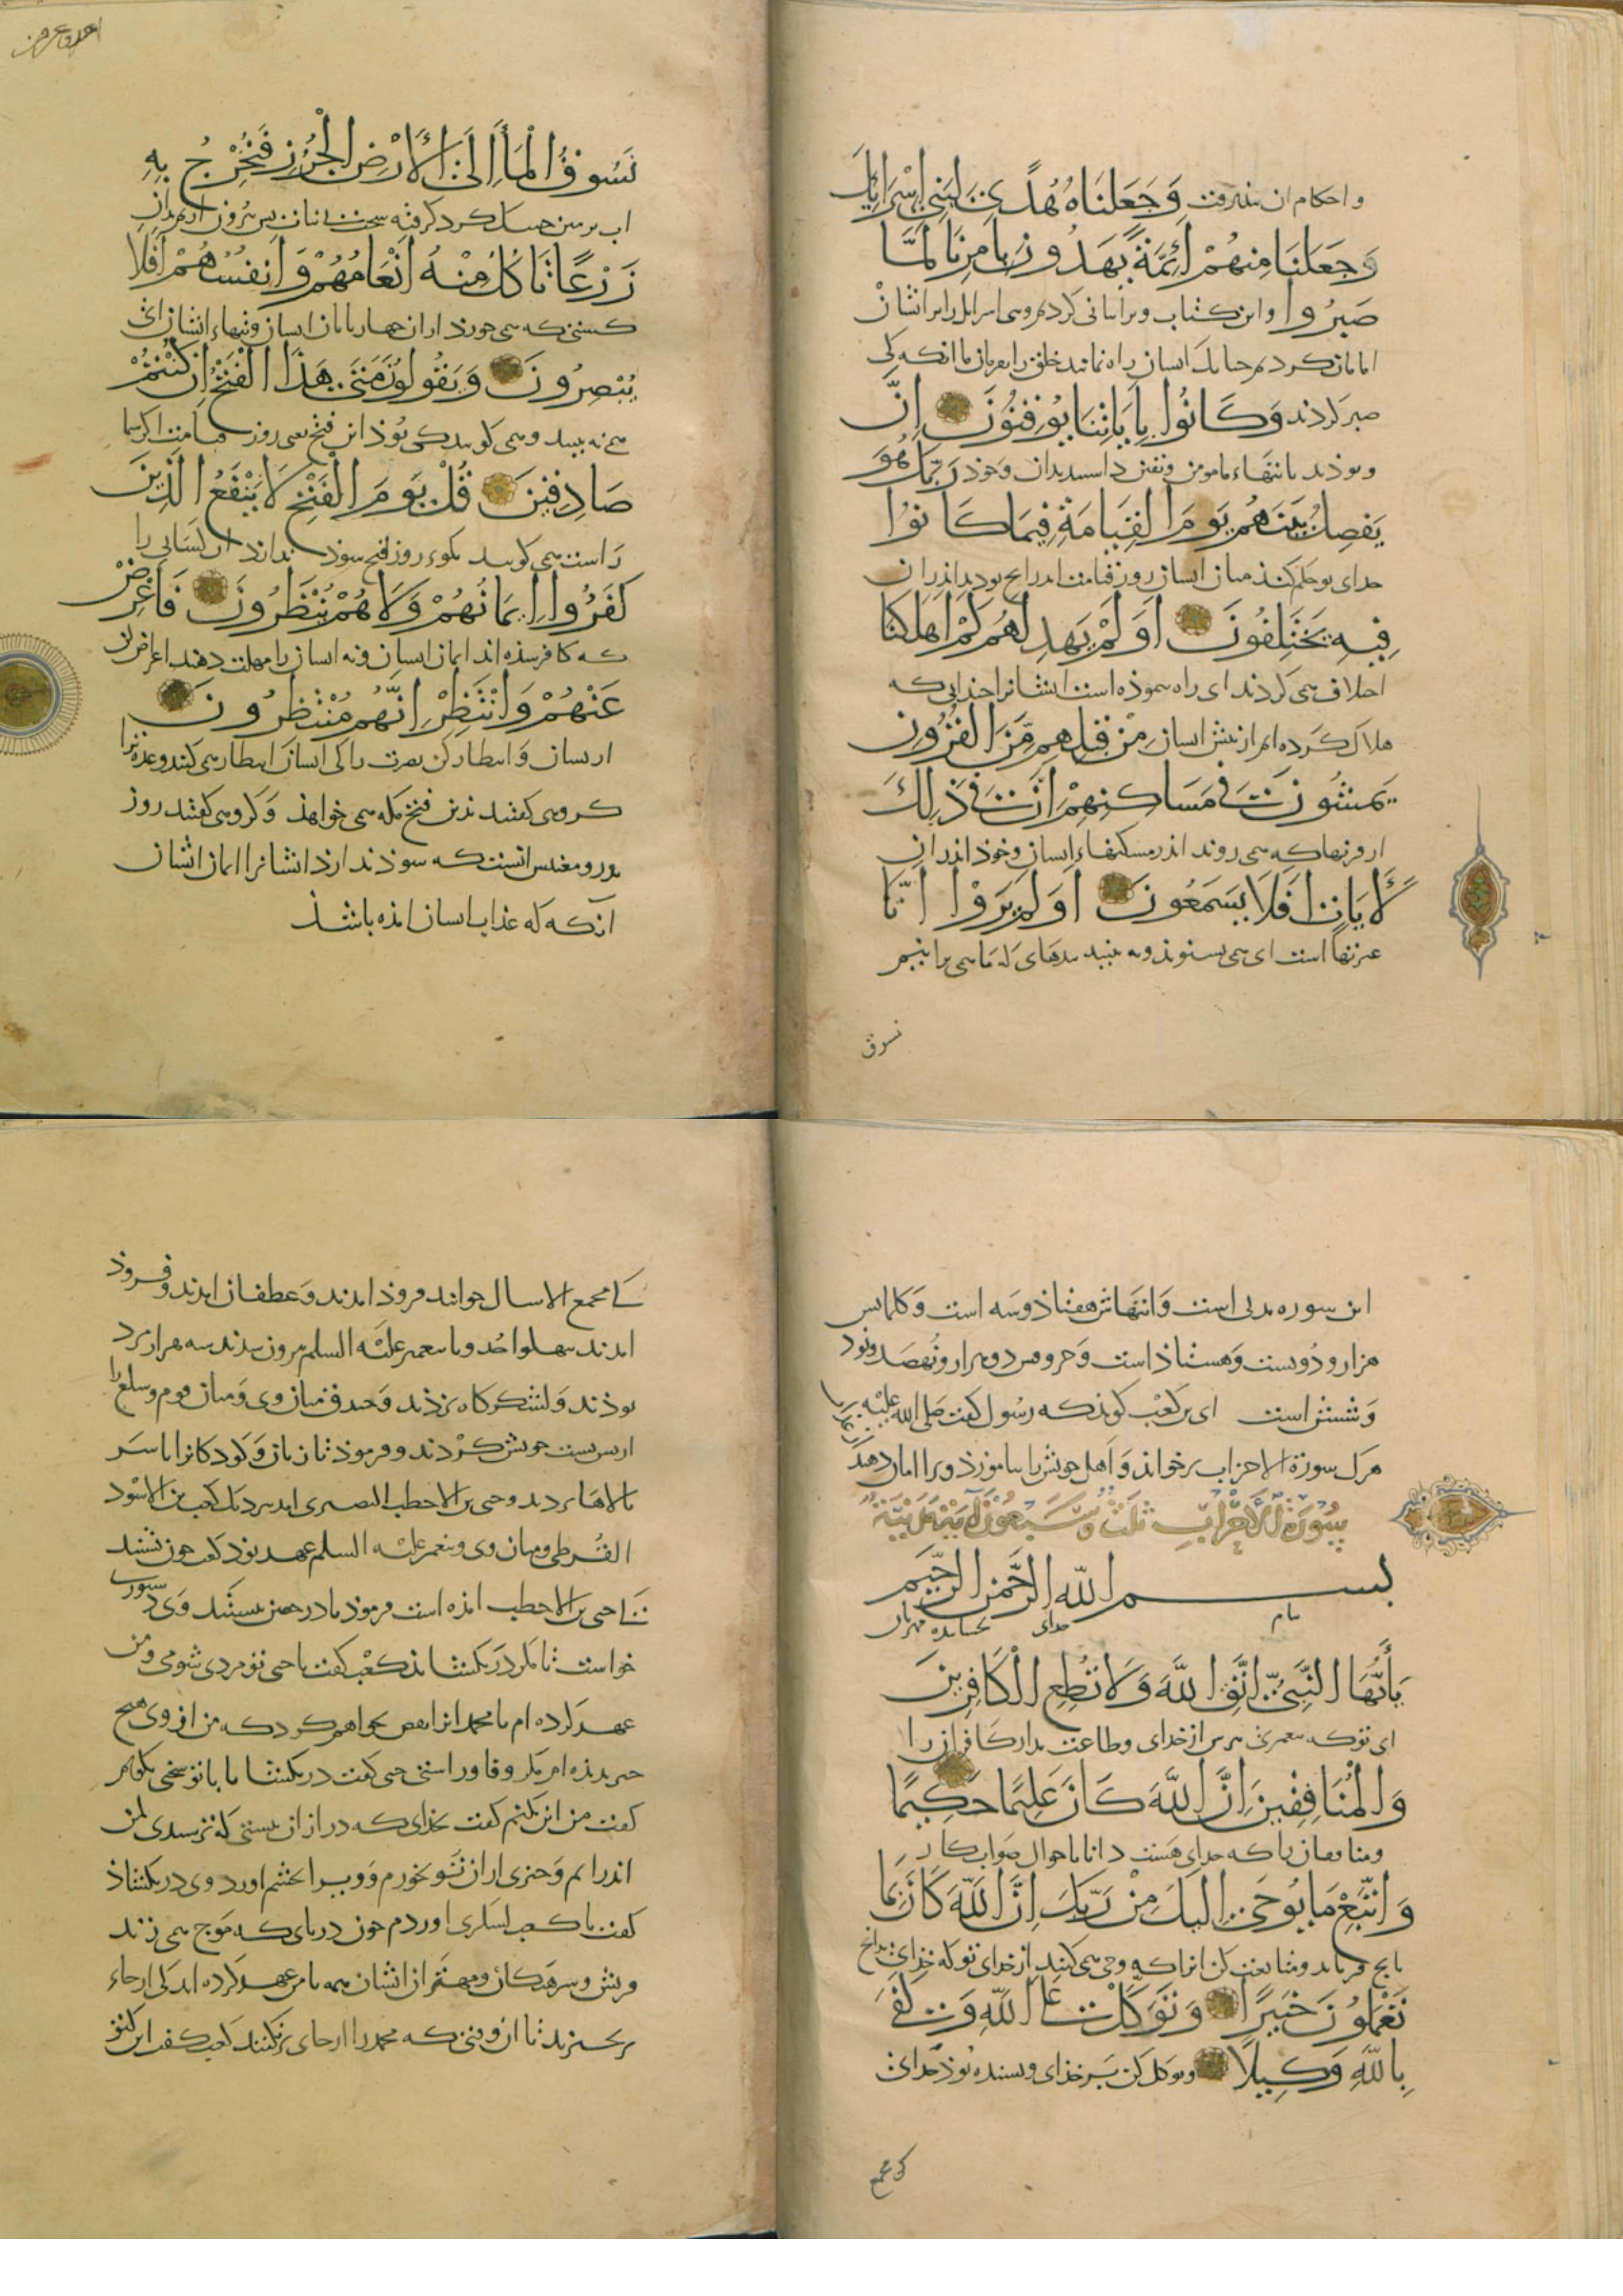 و احکام ان بپذیرفت وَجَعَلنَاهُ هُدًى لِبَنِي إِسْرَائِيلَ
وَجَعَلْنَا مِنهُمْ أَئِمَّةً يَهْدُونَ بِأَمْرِنَا لَمَّا
صَبَرُوا و این کتاب وبرا بیانی کردیم بنی اسرایل را و از ایشان
امامان کردیم جنانک ایسان راه نمایند خلق را بفرمان ما انکه کی
صبر کردند وَكَانُوا بِآيَاتِنَا يُوقِنُونَ إِنَّ
وبودند بایتهاء ما مومن و یقین دانستند بدان و خود رَبَّكَ هُوَ
يَفصِلُ بَيْنَهُمْ يَومَ الْقِيَامَةِ فِيمَا كَانُوا
خدای تو حکم کند میان ایسان روز قیامت اندرانج بودند اندران
فِيهِ يَخْتَلِفُونَ أَوَلَمْ يَهدِ لَهُم كَمْ أَهلَكنَا
اختلاف می کردند ای راه ننموذه است ایشانرا جندانی که
هلاک کرده ایم از پیش ایسان مِنْ قَبلِهِم مِّنَ القُرُونِ
يَمشُونَ فِي مَسَاكِنِهِمْ إِنَّ فِي ذَلِكَ
از قرنها که می روند اندر مسکنهاء ایسان و خود اندران
لَآيَاتٍ أَفَلَا يَسمَعُونَ أَوَلَم يَرَوْا أَنَّا
عبرتها است ای می نسنوند ونه بینند بدهای که ما می برانیم
نسوق
نَسُوقُ الْمَاءَ إِلَى الْأَرْضِ الْجُرُزِ فَنُخْرِجُ بِهِ
اب بر زمین خسک کرد کرفته سخت بی نبات پس بیرون اریم بدان
زَرْعًا تَأكُلُ مِنْهُ أَنْعَامُهُمْ وَأَنفُسُهُمْ أَفَلَا
کشتی که می خورند ازان جهاربایان ایسان و تنهاء ایشان ای
يُبْصِرُونَ وَيَقُولُونَ مَتَى هَذَا الْفَتْحُ إِن كُنْتُمْ
می نه بینند و می کویند کی بوذ این فتح یعنی روز قیامت اکر شما
صَادِقِينَ قُلْ يَومَ الْفَتْحِ لَا يَنْفَعُ الَّذِينَ
راست می کویید بکوء روز فتح سوذ ندارد ان کسانی را
كَفَرُوا إِيمَانُهُمْ وَلَا هُمْ يُنْظَرُونَ فَأَعْرِضْ
که کافر شذه اند ایمان ایسان و نه ایسان را مهلت دهند اعراض کن
عَنْهُمْ وَانْتَظِرْ إِنَّهُم مُنْتَظِرُونَ
از یسان و انتظار کن نصرت را کی ایسان انتظار می کنند وعده ترا
کروهی کفتند بدین فتح مکه می خواهذ و کروهی کفتند روز
بدر و معنیش انست که سوذ ندارد ایشانرا ایمان ایشان
آنکه که عذاب ایسان امده باشذ
این سوره مدنی است و ایتهاش هفتاذ و سه است و کلماتش
هزار و دویست و هستاذ است و حروفش دو هزار و نهصد و نود
و ششش است ابی بن کعب کویذ که رسول کفت صلی الله علیه
هرک سورة الاحزاب برخواند و اهل خویش را بیاموزذ ویرا امان دهند
سُورَةُ الْأَحْزَابِ ثَلَثٌ وَسَبعُونَ آيَةً مَدَنِيَّةٌ
بسم الله الرَّحمن الرَّحِيم
بنام خدای بخساینده مهربان
يَأَيُّهَا النَّبِيُّ اتَّقِ اللَّهَ وَلَا تُطِعِ الْكَافِرِينَ
ای توکه بیغمبری بترس از خدای و طاعت مدار کافران را
وَالْمُنَافِقِينَ إِنَّ اللَّهَ كَانَ عَلِيمًا حَكِيمًا
و منافقان را که خدای هست دانا باحوال صواب کار
وَاتَّبِعْ مَا يُوحَى إِلَيكَ مِنْ رَبِّكَ إِنَّ اللَّهَ كَانَ بِمَا
و متابعت کن انرا که وحی می کنند از خدای تو که خدای بدانج
تَعْمَلُونَ خَبِيرًا وَتَوَكَّلْ عَلَى اللَّهِ وَكَفَى
بِاللَّهِ وَكِيلًا و توکل کن بر خذای و بسنده بوذ خدای
کی مجمع
کی مجمع الاسیال خوانند فروذ امدند و غطفان امدند و فروذ
امدند ببهلو احُد و بیغمبر علیه السلم بیرون شدند سه هزار مرد
بوذند و لشکرکاه بزذند و خندق میان وی و میان قوم و سلع را
از بس بست خویش کردند و فرموذ تا زنان و کوذکانرا با سر
بالاها بردند و حیی بن الاخطب النضری امد بنزدیک کعب بن الاسود
القرظی و میان وی و بیغمبر علیه السلم عهد بوذ کعب جون بشنید
تا حیی بن الاخطب امذه است فرموذ تا در حصن ببستند و وی دستوری
خواست تا مکر در بکشاید کعب کفت یا حیی تو مردی شومی و من
عهد کرده ام با محمد انرا نقض نخواهم کرد که من از وی هیج
جیز ندیذه ام مکر وفا و راستی حیی کفت در بکشا تا با تو سخنی بکویم
کفت من این نکنم کفت بخدای که در ازان ببستی که ترسیدی که من
اندر ایم و جیزی از ان تو بخورم و ویرا بخشم اورد وی در بکشاذ
کفت یا کعب لسکری اوردم جون دریای که موج می زند
قریش و سرهنکان و مهتران ایشان همه با من عهد کرده اند کی از جاء
برنخیزند تا ان وقتی که محمد را از جای برنکنند کعب کفت این کنو